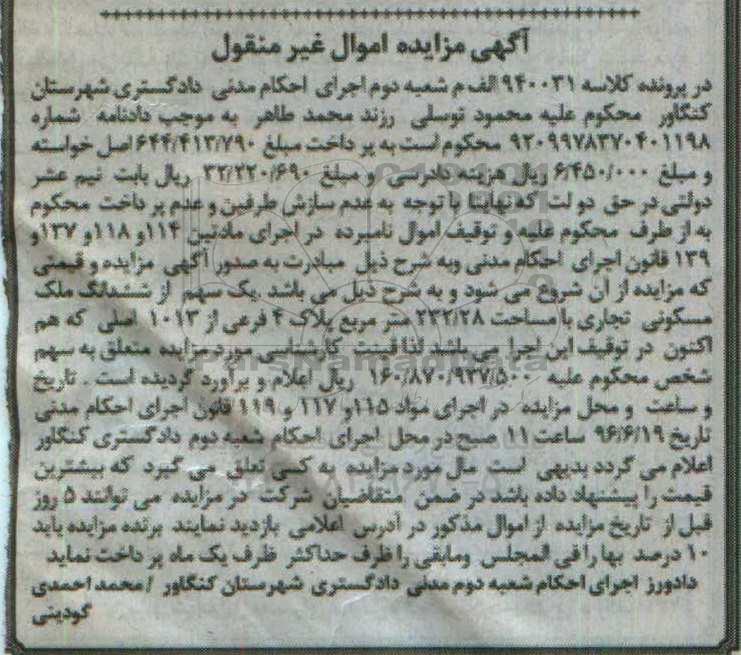 آگهی مزایده اموال غیر منقول
در پرونده کلاسه ۹۴۰۰۳۱ الف م شعبه دوم اجرای احکام مدنی دادگستری شهرستان
کنگاور محکوم علیه محمود توسلی رزند محمد طاهر به موجب دادنامه شماره
۹۲۰۹۹۷۸۳۷۰۴۰۱۱۹۸ محکوم است به پرداخت مبلغ ۶۴۴/۴۱۳/۷۹۰ اصل خواسته
و مبلغ ۶/۴۵۰/۰۰۰ ریال هزینه دادرسی و مبلغ ۳۲/۲۲۰/۶۹۰ ریال بابت نیم عشر
دولتی در حق دولت که نهایتا با توجه به عدم سازش طرفین و عدم پرداخت محکوم
به از طرف محکوم علیه و توقیف اموال نامبرده در اجرای مادتین ۱۱۴ و ۱۱۸ و ۱۳۷ و
۱۳۹ قانون اجرای احکام مدنی وبه شرح ذیل مبادرت به صدور آگهی مزایده و قیمتی
که مزایده از آن شروع می شود و به شرح ذیل می باشد .یک سهم از ششدانگ ملک
مسکونی تجاری با مساحت ۲۳۲/۲۸ متر مربع پلاک ۴ فرعی از ۱۰۱۳ اصلی که هم
اکنون در توقیف این اجرا می باشد لذا قیمت کارشناسی مورد مزایده متعلق به سهم
شخص محکوم علیه ۱۶۰/۸۷۰/۹۳۷/۵۰۰ ریال اعلام و براورد گردیده است . تاریخ
و ساعت و محل مزایده در اجرای مواد ۱۱۵ و ۱۱۷ و ۱۱۹ قانون اجرای احکام مدنی
تاریخ ۹۶/۶/۱۹ ساعت ۱۱ صبح در محل اجرای احکام شعبه دوم دادگستری کنگاور
اعلام می گردد بدیهی است مال مورد مزایده به کسی تعلق می گیرد که بیشترین
قیمت را پیشنهاد داده باشد در ضمن متقاضیان شرکت در مزایده می توانند ۵ روز
قبل از تاریخ مزایده از اموال مذکور در آدرس اعلامی بازدید نمایند برنده مزایده باید
۱۰ درصد بها را فی المجلس ومابقی را ظرف حداکثر ظرف یک ماه پرداخت نماید
دادورز اجرای احکام شعبه دوم مدنی دادگستری شهرستان کنگاور / محمد احمدی
گودینی